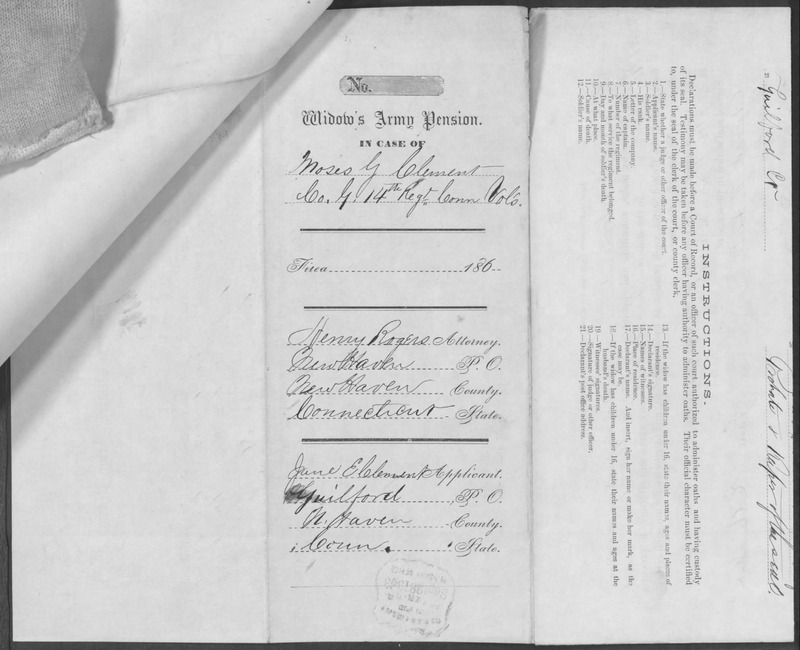 No.
Widow's Army Pension.
IN CASE OF
Moses G Clement
Co. G. 14th Regt. Conn Vols.
Filed 186
Henry Rogers Attorney.
New Haven P. O.
New Haven County.
Connecticut State.
Jane E Clement Applicant.
Guilford P. O.
N. Haven County.
Conn. State.
INSTRUCTIONS.
Declarations must be made before a Court of Record, or an officer of such court authorized to administer oaths and having custody
of its seal. Testimony may be taken before any officer having authority to administer oaths. Their official character must be certified
to, under the seal of the clerk of the court, or county clerk.
1.—State whether a judge or other officer of the court.
2.—Applicant's name.
3.—Soldier's name.
4.—His rank.
5.—Letter of the company.
6.—Name of captain.
7.—Number of the regiment.
8.—To what service the regiment belonged.
9.—Day and month of soldier's death.
10.—At what place.
11.—Cause of death.
12.—Soldier's name.
13.—If the widow has children under 16, state their names, ages and places of
residence.
14.—Declarant's signature.
15.—Names of witnesses.
16.—Place of residence.
17.—Declarant's name. And insert, sign her name or make her mark, as the
case may be.
18.—If the widow has children under 16, state their names and ages at the
husband's death.
19.—Witnesses' signatures.
20.—Signature of judge or other officer.
21.—Declarant's post office address.
Guilford Ct